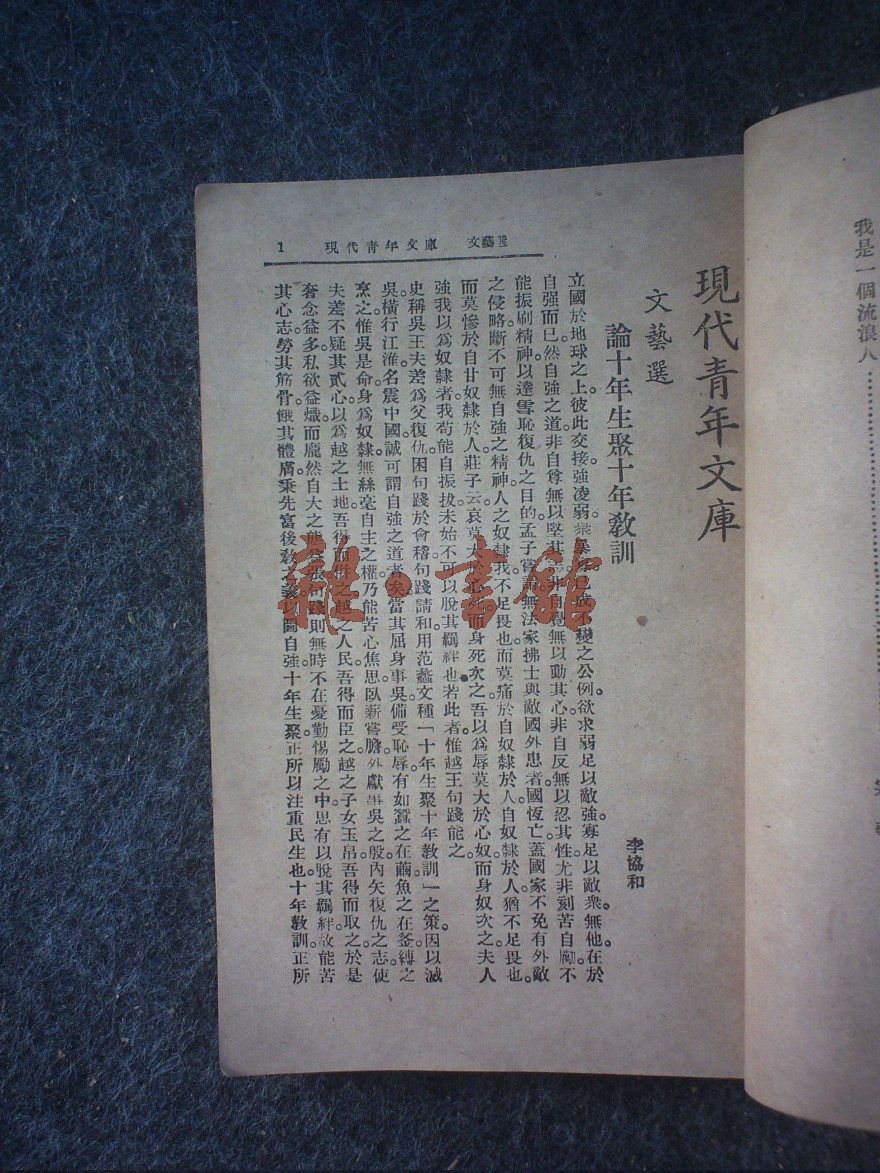 我是一個流浪人
現代青年文庫
文藝選
論十年生聚十年教訓
李協和
立國於地球之上。彼此交接。強凌弱。衆暴寡。已成不變之公例。欲求弱足以敵強。寡足以敵衆。無他。在於
自强而已。然自強之道。非自尊無以堅其志。非自覺無以動其心。非自反無以忍其性。尤非刻苦自勵。不
能振刷精神。以達雪恥復仇之目的。孟子嘗謂無法家拂士與敵國外患者。國恆亡。蓋國家不免有外敵
之侵略。斷不可無自強之精神。人之奴隸我不足畏也。而莫痛於自奴隸於人。自奴隸於人。猶不足畏也。
而莫慘於自甘奴隸於人。莊子云。哀莫大於心死。而身死次之。吾以爲辱莫大於心奴。而身奴次之。夫人
強我以爲奴隸者。我苟能自振拔。未始不可以脫其羈絆也。若此者。惟越王句踐能之。
史稱吳王夫差爲父復仇。困句踐於會稽。句踐請和。用范蠡文種「十年生聚十年教訓」之策。因以滅
吳。橫行江淮。名震中國。誠可謂自強之道者矣。當其屈身事吳。備受恥辱。有如蠶之在繭。魚之在釜。縛之
烹之。惟吳是命。身爲奴隸。無絲毫自主之權。乃能苦心焦思。臥薪嘗膽。外獻事吳之殷。內矢復仇之志。使
夫差不疑其貳心。以爲越之土地。吾得而併之。越之人民。吾得而臣之。越之子女玉帛。吾得而取之。於是
奢念益多。私欲益熾。而龐然自大之態益張。句踐則無時不在憂勤惕勵之中。思有以脫其羈絆。故能苦
其心志。勞其筋骨。餓其體膚。秉先富後敎之義。以圖自強。十年生聚。正所以注重民生也。十年教訓。正所
1 現代青年文庫 文藝選
雜·書館